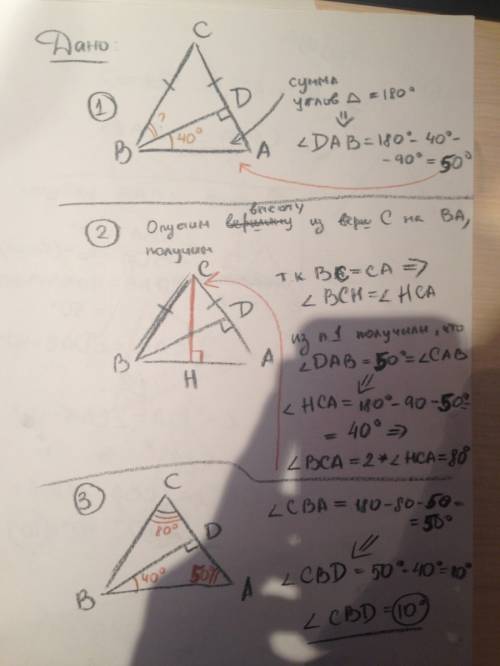 Дано:
1
C
D
B
A
?
40°
сумма
углов Δ = 180°
∠DAB = 180° - 40° -
- 90° = 50°
2
Опустим вершину высоту из верш C на BA,
получим
C
D
B
H
A
т.к BC = CA =>
∠BCH = ∠HCA
из п.1 получили, что
∠DAB = 50° = ∠CAB
∠HCA = 180° - 90 - 50° =
= 40° =>
∠BCA = 2*∠HCA = 80°
3
C
80°
D
B
40°
50°
A
∠CBA = 180 - 80 - 50 =
= 50°
∠CBD = 50° - 40° = 10°
∠CBD = 10°